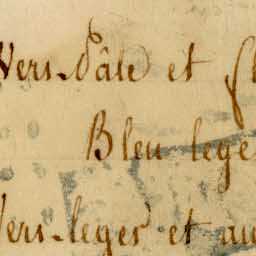 Vers Pâle et
Bleu lege
Vers-leger et au